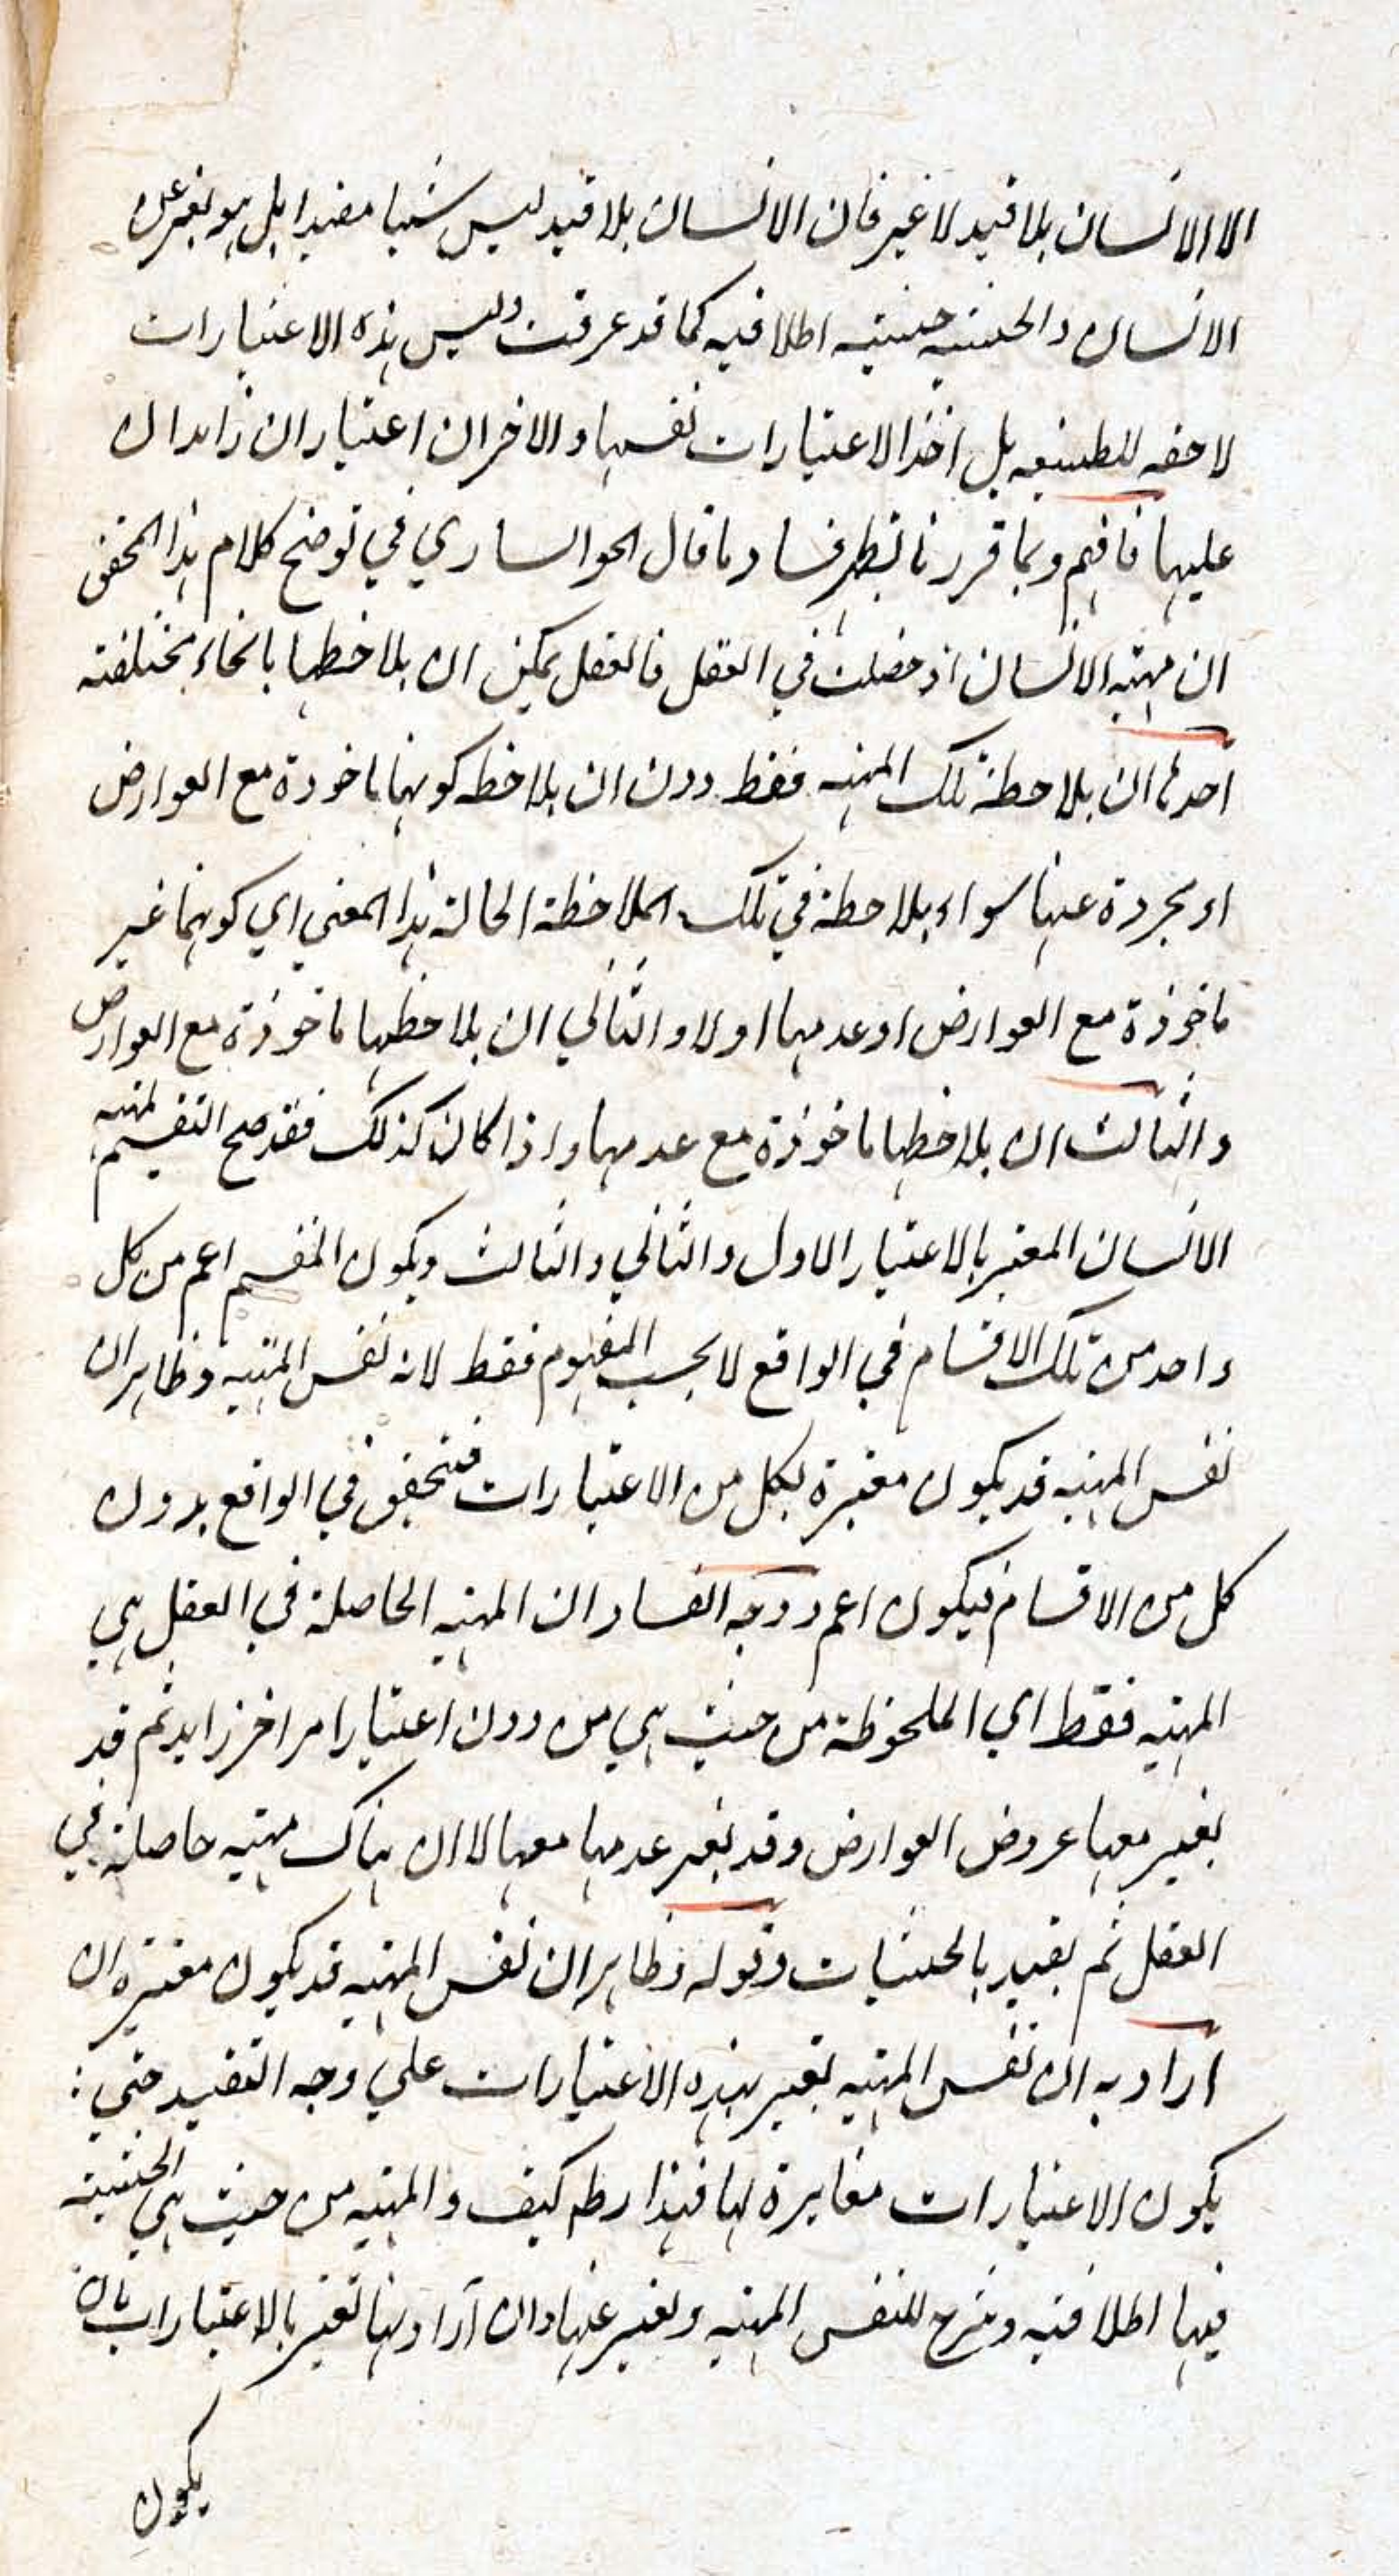 الا الانسان بلا قيد لا غير فان الانسان بلا قيد ليس شيا مقيدا بل هو تعبير عن
الانسان والحيثيه حيثيه اطلاقيه كما قد عرفت وليس هذه الاعتبارات
لاحقه للطبيعه بل احد الاعتبارات نفسها والاخران اعتباران زايدان
عليها فافهم وبما قررنا يظهر فساد ما قال الخوانساري في توضيح كلام هذا المحقق
ان مهيه الانسان اذ حصلت في العقل فالعقل يمكن ان يلاحظها بانحاء مختلفة
احدها ان يلاحظ تلك المهيه فقط دون ان يلاحظ كونها ماخوذة مع العوارض
او مجردة عنها سواء يلاحظ في تلك الملاحظة الحالة هذا المعني اي كونها غير
ماخوذة مع العوارض او عدمها اولا والثاني ان يلاحظها ماخوذة مع العوارض
والثالث ان يلاحظها ماخوذة مع عدمها واذا كان كذلك فقد صح التقسيم لمهيه
الانسان المعتبر بالاعتبار الاول والثاني والثالث ويكون المقسم اعم من كل
واحد من تلك الاقسام في الواقع لا بحسب المفهوم فقط لانه نفس المهيه وظاهر ان
نفس المهيه قد يكون معتبرة بكل من الاعتبارات فيتحقق في الواقع بدون
كل من الاقسام فيكون اعم ووجه الفساد ان المهيه الحاصلة في العقل هي
المهيه فقط اي الملحوظة من حيث هي من دون اعتبار امر اخر زايد ثم قد
يعتبر معها عروض العوارض وقد يعتبر عدمها معها لا ان هناك مهيه حاصلة في
العقل ثم يقيد بالحيثيات وقوله وظاهر ان نفس المهيه قد يكون معتبره ان
اراد به ان نفس المهيه يعتبر بهذه الاعتبارات علي وجه التقييد حتي :
يكون الاعتبارات مغايرة لها فهذا كيف والمهيه من حيث هي الحيثية
فيها اطلاقيه وشرح لنفس المهيه وتعبير عنها وان اراد بها تعتبر بالاعتبارات بان
يكون